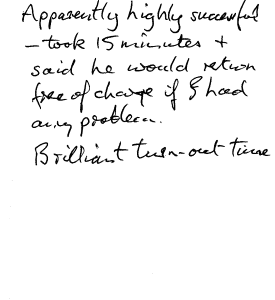 Apparently highly successful
- took 15 minutes +
said he would return
free of charge if I had
any problem.
Brilliant turn-out time